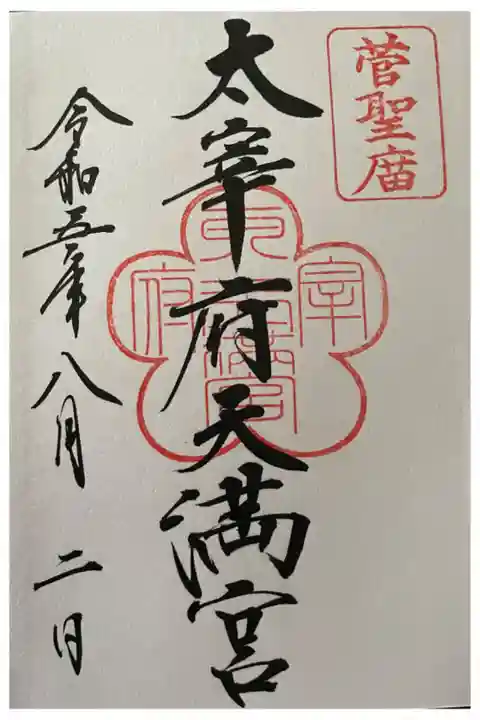 菅聖庿
太宰府天満宮
令和五年八月二日